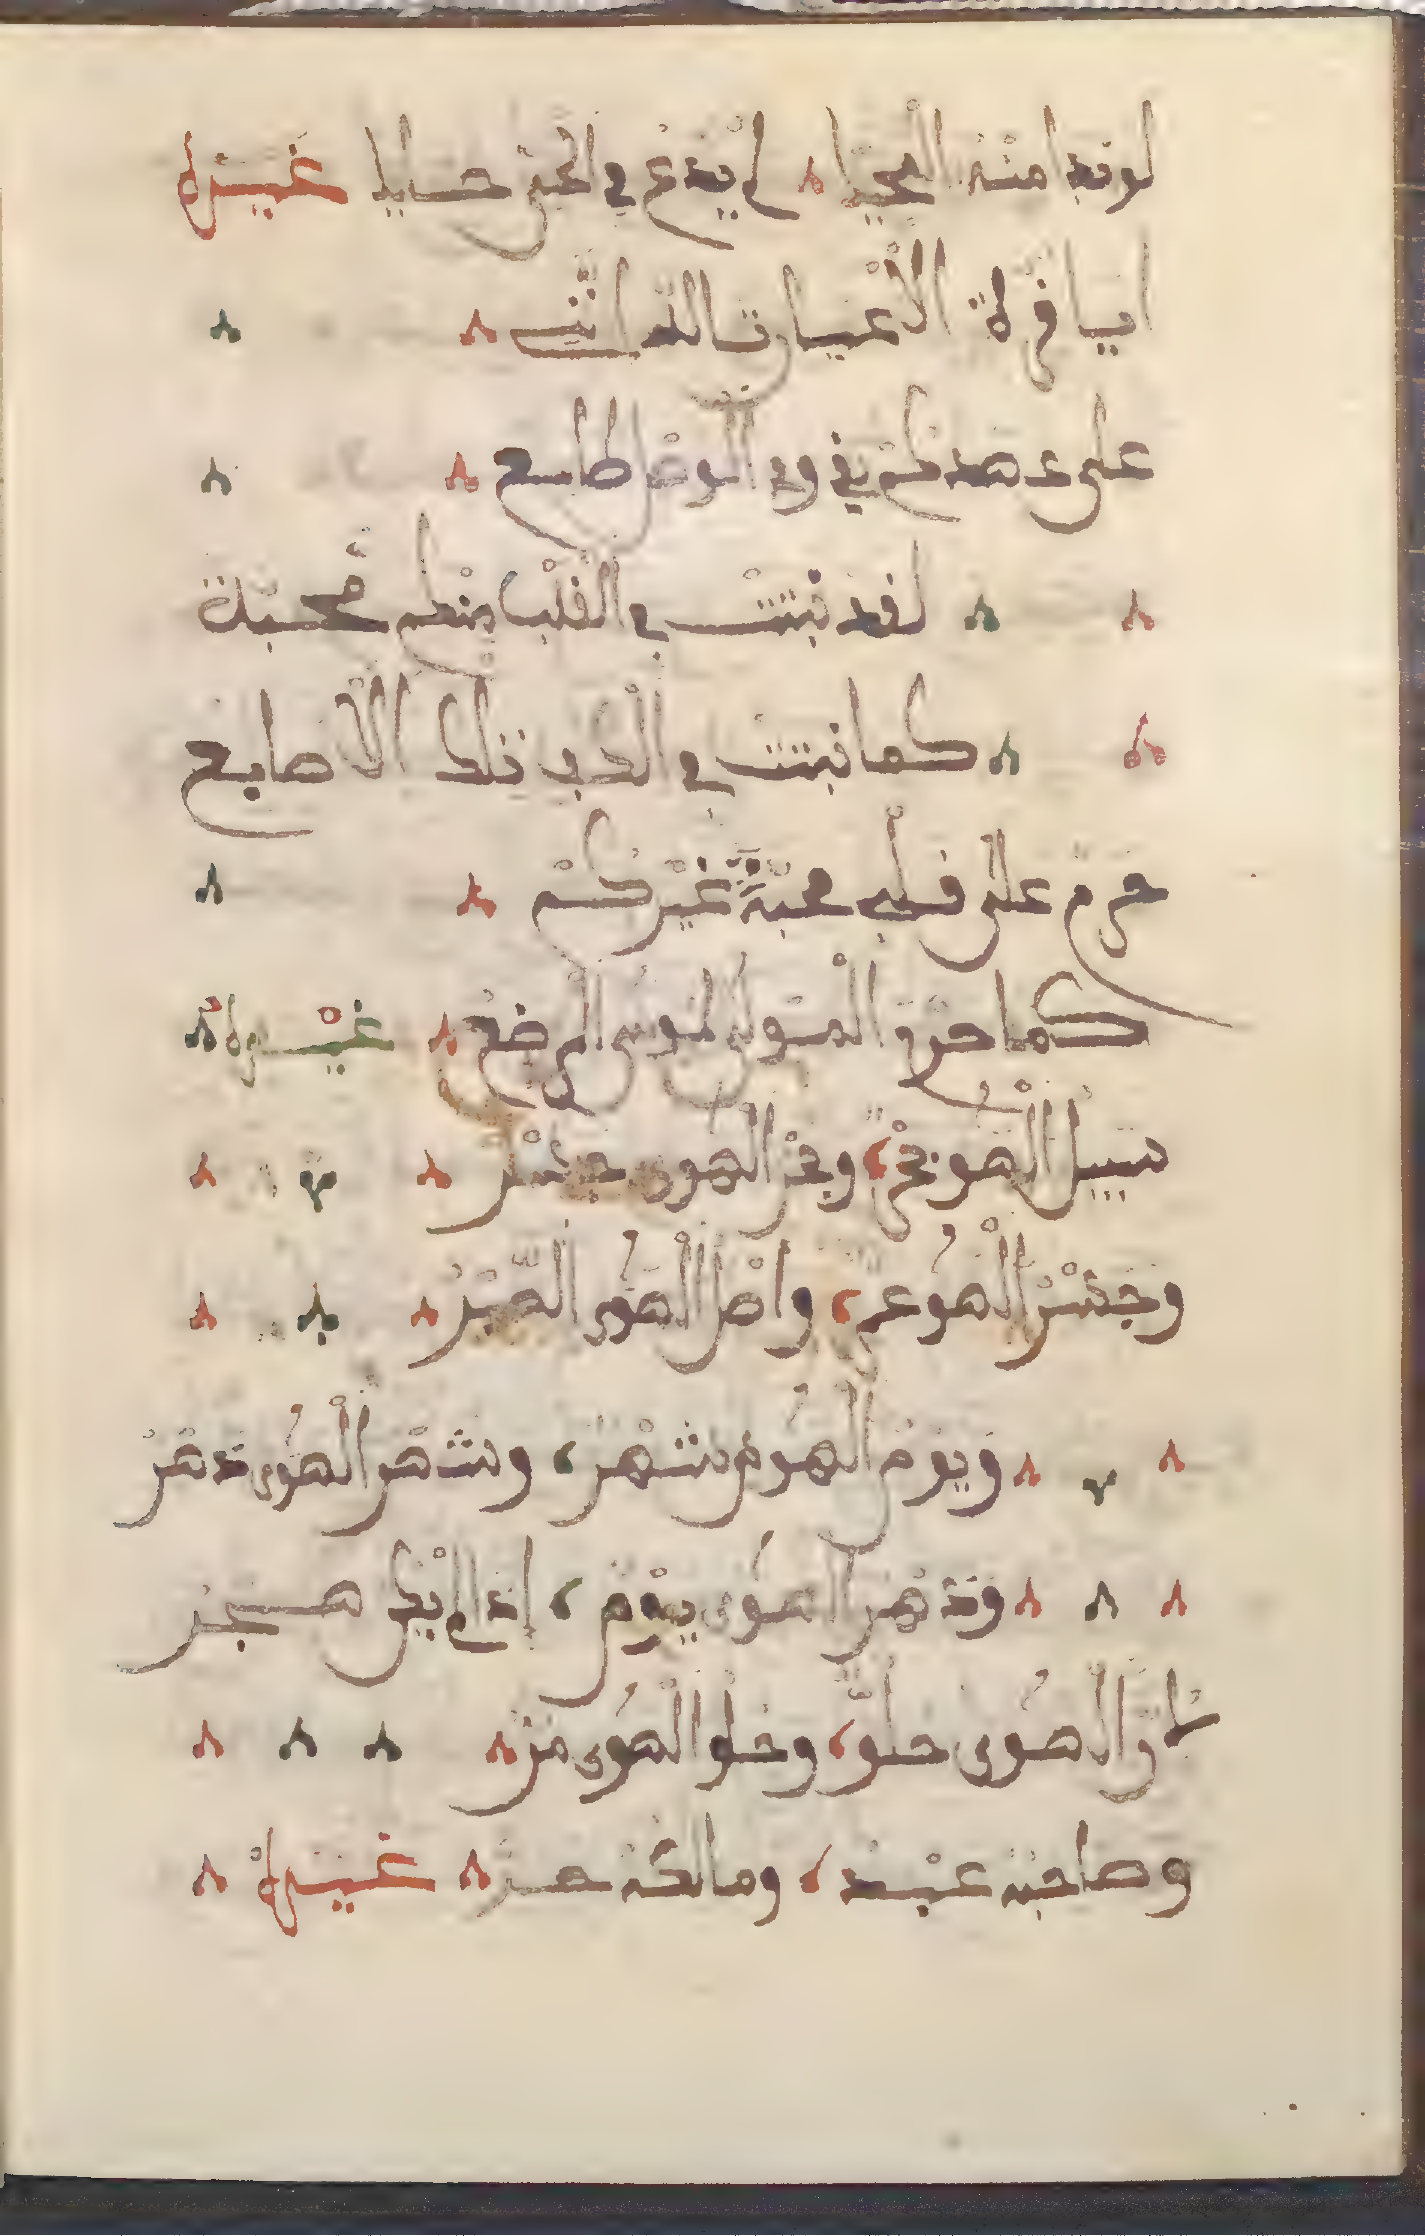 لو بدا منه المحيا لم يدع في الحي حيا غيره
ايا قرة الاعيان تالله انني
على عهدكم في ود الوصل طامع
لقد نبتت في القلب منكم محبة
كما نبتت في الكف تلك الاصابع
حرم على قلبي محبة غيركم
كما حرم المولى لموسى المراضع غيره
سبيل الهوى وبحر الهوى جسر
وجسر الهوى وامر الهوى الصبر
ويوم الهوى شهر وشهر الهوى دهر
ودهر الهوى يوم اذا لم يكن هجر
ومر الهوى حلو وحلو الهوى مر
وصاحبه عبد ومالكه حر غيره